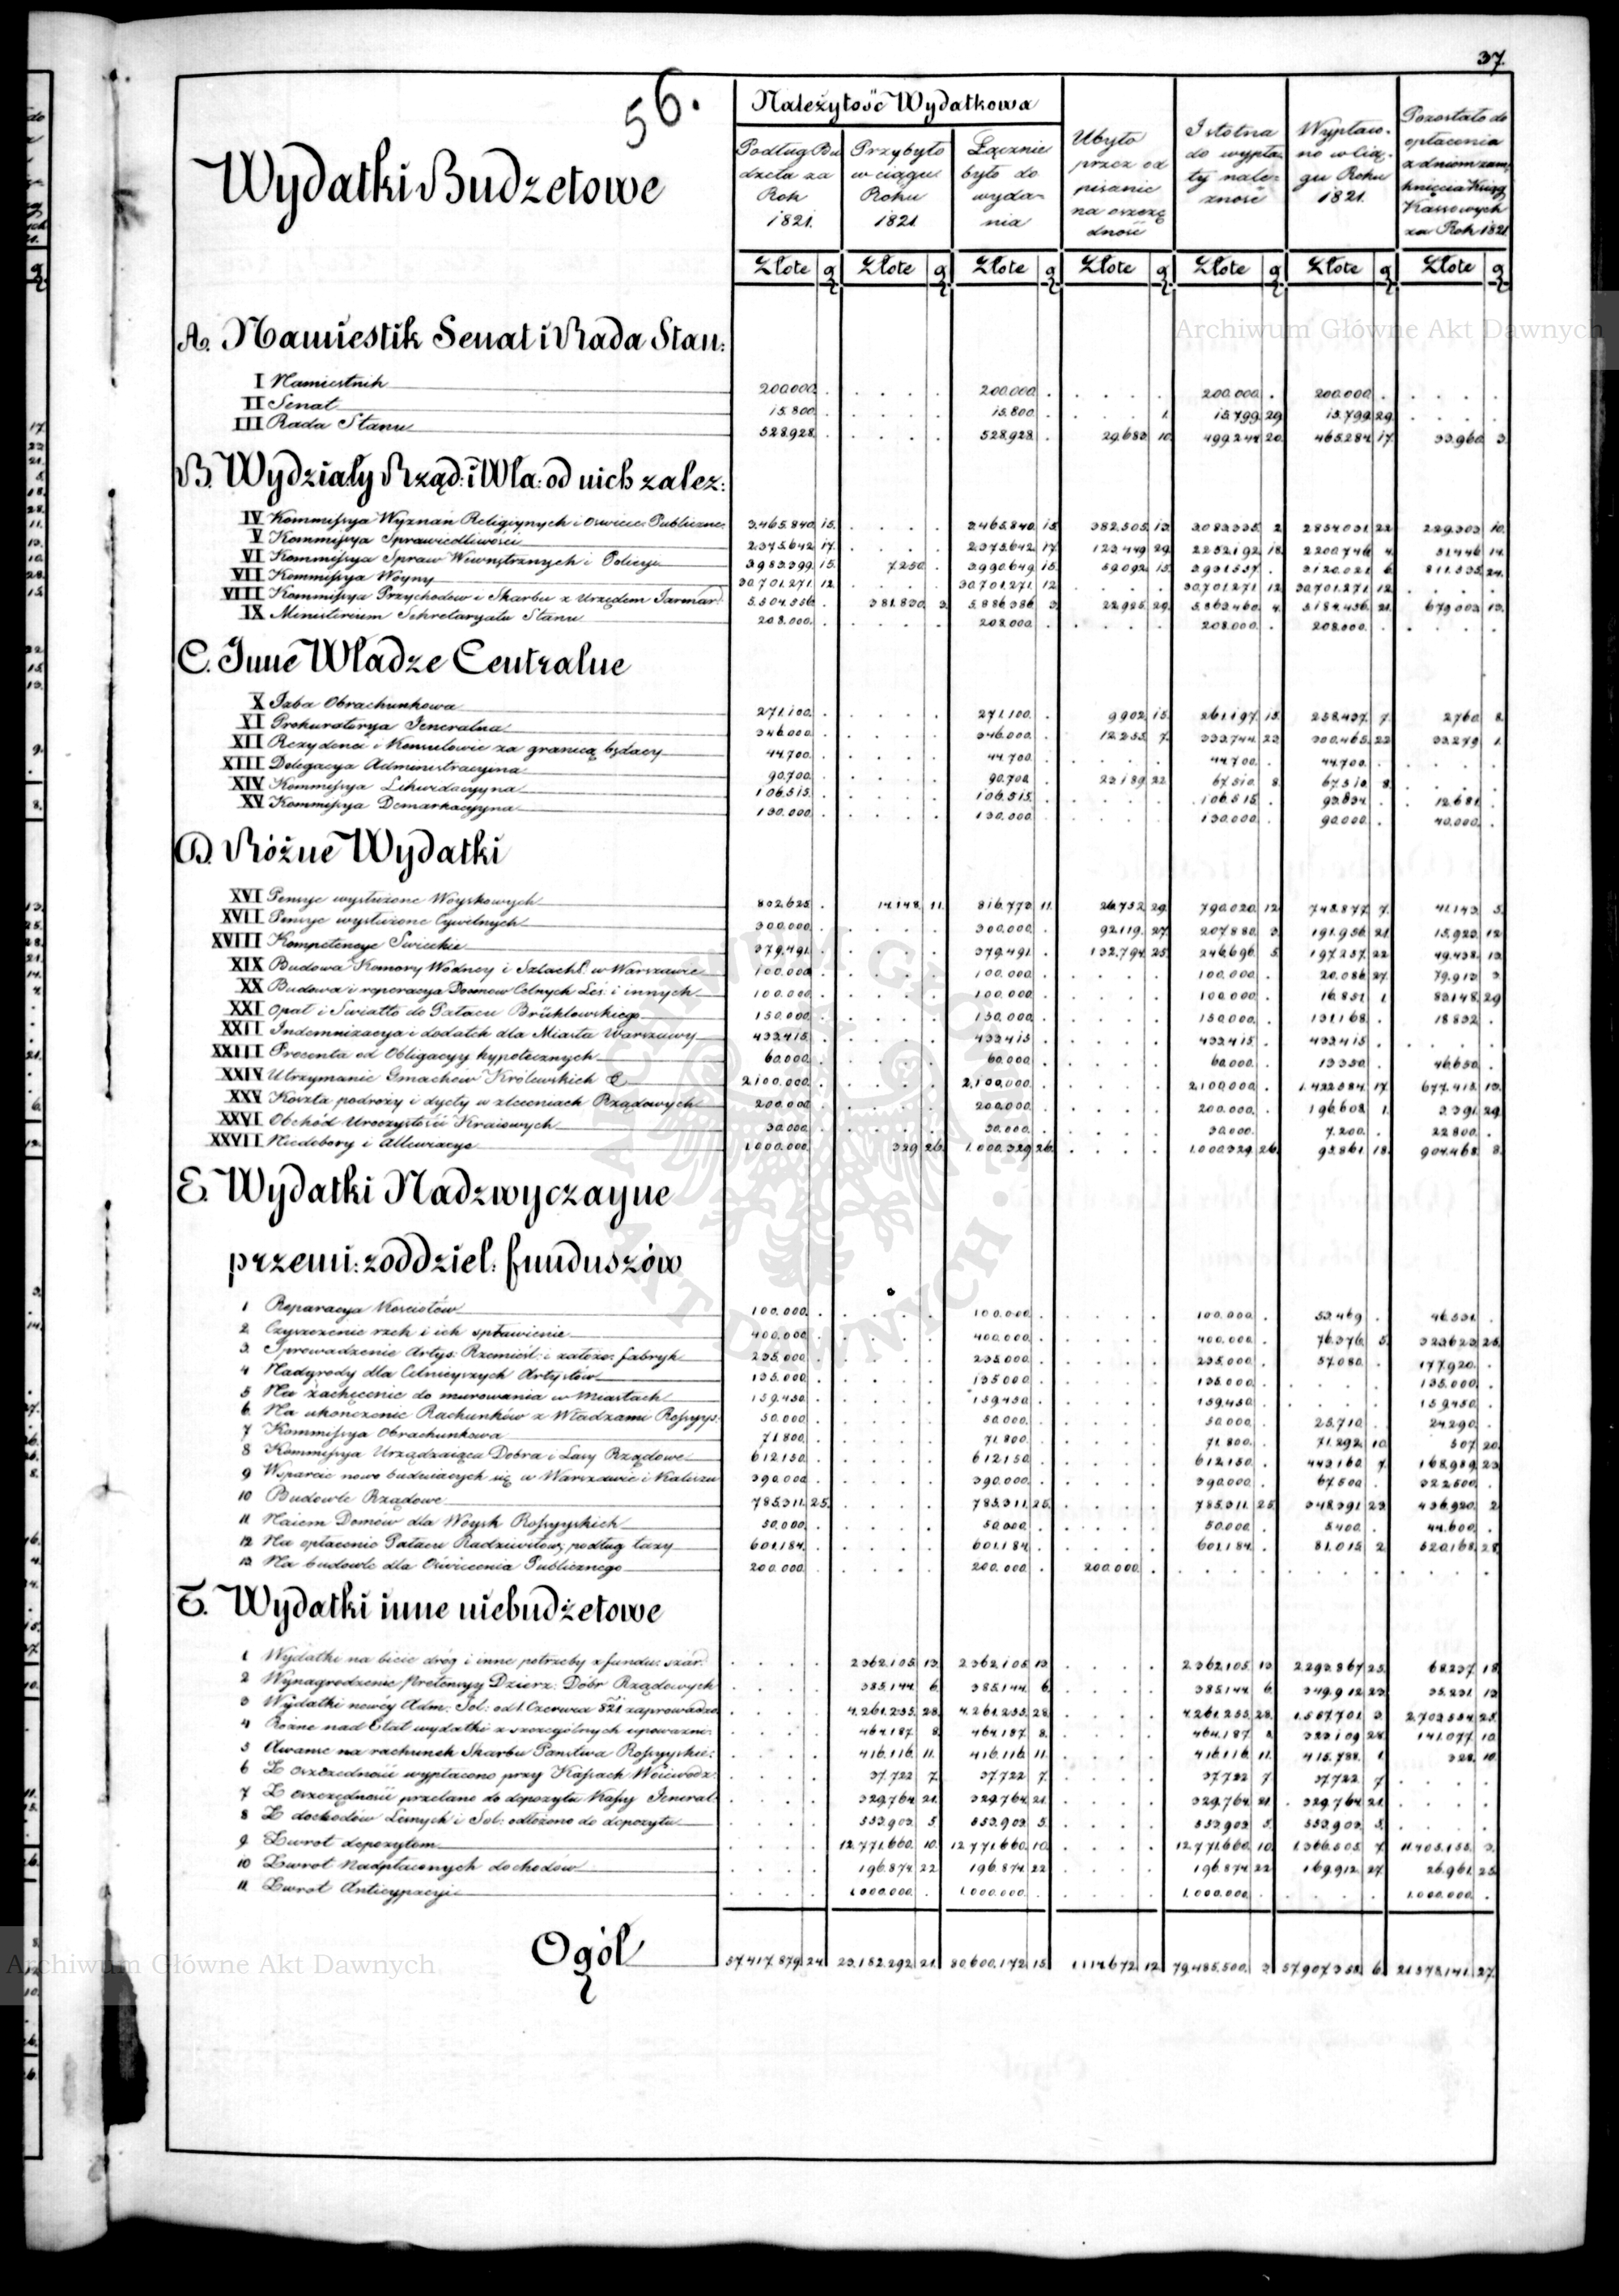 37.
56.
Wydatki Budżetowe
Należytość Wydatkowa
Podług Budżetu za Rok 1821.
Przybyło w ciągu Roku 1821.
Łącznie było do wydania
Ubyło przez odpisanie na oszczędność
Istotna do wypłaty należność
Wypłacono w ciągu Roku 1821.
Pozostało do opłacenia z dniem zamknięcia Xiąg Kassowych za Rok 1821
Złote g Złote g Złote g Złote g Złote g Złote g Złote g
A. Namiestik Senat i Rada Stan:
I Namiestnik 200.000 . . . . . 200.000 . . . . . 200.000 . 200.000 . . . . .
II Senat 15.800 . . . . . 15.800 . . . . 1. 15.799 29 15.799 29 . . . .
III Rada Stanu 528.928 . . . . . 528.928 . 29.683 10 499.244 20 465.284 17 33.960 3
B. Wydziały Rząd: i Wła: od nich zależ:
IV Kommissya Wyznań Religiynych i Oświece: Publiczne 3.465.840 15 . . . . 3.465.840 15 382.505 13 3.083.335 2 2.854.031 22 229.303 10
V Kommissya Sprawiedliwości 2.375.642 17 . . . . 2.375.642 17 123.449 29 2.252.192 18 2.200.746 4 51.446 14
VI Kommissya Spraw Wewnętrznych i Policyi 3.983.399 15 7.250 . 3.990.649 15 59.092 15 3.931.557 . 3.120.021 6 811.535 24
VII Kommissya Woyny 30.701.271 12 . . . . 30.701.271 12 . . . . 30.701.271 12 30.701.271 12 . . . .
VIII Kommissya Przychodów i Skarbu z Urzędem Jarmar: 5.504.556 . 381.830 3 5.886.386 3 22.925 29 5.863.460 4 5.184.456 21 679.003 13
IX Ministerium Sekretaryatu Stanu 208.000 . . . . . 208.000 . . . . . 208.000 . 208.000 . . . . .
C. Inne Władze Centralne
X Izba Obrachunkowa 271.100 . . . . . 271.100 . 9902 15 261.197 15 258.437 7 2760 8
XI Prokuratorya Jeneralna 346.000 . . . . . 346.000 . 12.255 7 333.744 23 300.465 22 33.279 1
XII Rezydenci i Konsulowie za granicą będący 44.700 . . . . . 44.700 . . . . . 44.700 . 44.700 . . . . .
XIII Delegacya Administracyina 90.700 . . . . . 90.700 . 23.189 22 67.510 8 67.510 8 . . . .
XIV Kommissya Likwidacyyna 106.515 . . . . . 106.515 . . . . . 106.515 . 93.834 . 12.681 .
XV Kommissya Demarkacyyna 130.000 . . . . . 130.000 . . . . . 130.000 . 90.000 . 40.000 .
D. Różne Wydatki
XVI Pensye wysłużone Woyskowych 802.625 . 14.148 11 816.773 11 26.752 29 790.020 12 748.877 7 41.143 5
XVII Pensye wysłużone Cywilnych 300.000 . . . . . 300.000 . 92.119 27 207.880 3 191.956 21 15.923 12
XVIII Kompetencye Świeckie 379.491 . . . . . 379.491 . 132.794 25 246.696 5 197.257 22 49.438 13
XIX Budowa Komory Wodney i Szlacht: w Warszawie 100.000 . . . . . 100.000 . . . . . 100.000 . 20.086 27 79.913 3
XX Budowa i reperacya Domów Celnych Leś: i innych 100.000 . . . . . 100.000 . . . . . 100.000 . 16.851 1 83.148 29
XXI Opał i Światło do Pałacu Brühlowskiego 150.000 . . . . . 150.000 . . . . . 150.000 . 131.168 . 18.832 .
XXII Indemnizacya i dodatek dla Miasta Warszawy 432.415 . . . . . 432.415 . . . . . 432.415 . 432.415 . . . . .
XXIII Procenta od Obligacyy hypotecznych 60.000 . . . . . 60.000 . . . . . 60.000 . 13.350 . 46.650 .
XXIV Utrzymanie Gmachów Królewskich & 2.100.000 . . . . . 2.100.000 . . . . . 2.100.000 . 1.422.584 17 677.415 13
XXV Koszta podróży i dyety w zleceniach Rządowych 200.000 . . . . . 200.000 . . . . . 200.000 . 196.608 1 3.391 29
XXVI Obchód Uroczystości Kraiowych 30.000 . . . . . 30.000 . . . . . 30.000 . 7.200 . 22.800 .
XXVII Niedobory i Allewiacye 1.000.000 . 329 26 1.000.329 26 . . . . 1.000.329 26 95.861 18 904.468 8
E. Wydatki Nadzwyczayne
przemi: z oddziel: funduszów
1 Reparacya Kościołów 100.000 . . . . . 100.000 . . . . . 100.000 . 53.469 . 46.531 .
2 Czyszczenie rzek i ich spławienie 400.000 . . . . . 400.000 . . . . . 400.000 . 76.376 5 323.623 25
3 Sprowadzenie Artys: Rzemieśl: i założe: fabryk 235.000 . . . . . 235.000 . . . . . 235.000 . 57.080 . 177.920 .
4 Nadgrody dla Celnieyszych Artystów 135.000 . . . . . 135.000 . . . . . 135.000 . . . 135.000 .
5 Na zachęcenie do murowania w Miastach 159.450 . . . . . 159.450 . . . . . 159.450 . . . 159.450 .
6 Na ukończenie Rachunków z Władzami Rossyys: 50.000 . . . . . 50.000 . . . . . 50.000 . 25.710 . 24.290 .
7 Kommissya Obrachunkowa 71.800 . . . . . 71.800 . . . . . 71.800 . 71.292 10 507 20
8 Kommissya Urządzaiąca Dobra i Lasy Rządowe 612.150 . . . . . 612.150 . . . . . 612.150 . 443.160 7 168.989 23
9 Wsparcie nowo buduiących się w Warszawie i Kaliszu 390.000 . . . . . 390.000 . . . . . 390.000 . 67.500 . 322.500 .
10 Budowle Rządowe 785.311 25 . . . . 785.311 25 . . . . 785.311 25 348.391 23 436.920 2
11 Naiem Domów dla Woysk Rossyyskich 50.000 . . . . . 50.000 . . . . . 50.000 . 5.400 . 44.600 .
12 Na opłacenie Pałacu Radziwiłłow: podług taxy 601.184 . . . . . 601.184 . . . . . 601.184 . 81.015 2 520.168 28
13 Na budowle dla Oświecenia Publicznego 200.000 . . . . . 200.000 . 200.000 . . . . . . . . . . . . .
F. Wydatki inne niebudżetowe
1 Wydatki na bicie dróg i inne potrzeby z fundu: szar: . . . . 2.362.105 13 2.362.105 13 . . . . 2.362.105 13 2.293.867 25 68.237 18
2 Wynagrodzenie Pretensyy Dzierż: Dóbr Rządowych . . . . 385.144 6 385.144 6 . . . . 385.144 6 349.912 23 35.231 13
3 Wydatki nowéy Adm: Sol: od 1. Czerwca 821 zaprowadzo: . . . . 4.261.255 28 4.261.255 28 . . . . 4.261.255 28 1.557.701 3 2.703.554 25
4 Różne nad Etat wydatki z szczególnych upoważni: . . . . 464.187 8 464.187 8 . . . . 464.187 8 323.109 28 141.077 10
5 Awanse na rachunek Skarbu Państwa Rossyyskie: . . . . 416.116 11 416.116 11 . . . . 416.116 11 415.788 1 328 10
6 Z oszczędności wypłacono przy Kassach Woiewódz: . . . . 37.722 7 37.722 7 . . . . 37.722 7 37.722 7 . . . .
7 Z oszczędności przelane do depozytu Kassy Jeneral: . . . . 329.764 21 329.764 21 . . . . 329.764 21 329.764 21 . . . .
8 Z dochodów Leśnych i Sol: odłożono do depozytu . . . . 553.903 5 553.903 5 . . . . 553.903 5 553.903 5 . . . .
9 Zwrot depozytom . . . . 12.771.660 10 12.771.660 10 . . . . 12.771.660 10 1.366.505 7 11.405.155 3
10 Zwrot Nadpłaconych dochodów . . . . 196.874 22 196.874 22 . . . . 196.874 22 169.912 27 26.961 25
11 Zwrot Anticypacyi . . . . 1.000.000 . 1.000.000 . . . . . 1.000.000 . . . 1.000.000 .
Ogół 57.417.879 24 23.182.292 21 80.600.172 15 1.114.672 12 79.485.500 3 57.907.358 6 21.578.141 27
Archiwum Główne Akt Dawnych
ARCHIWUM GŁÓWNE AKT DAWNYCH
Archiwum Główne Akt Dawnych